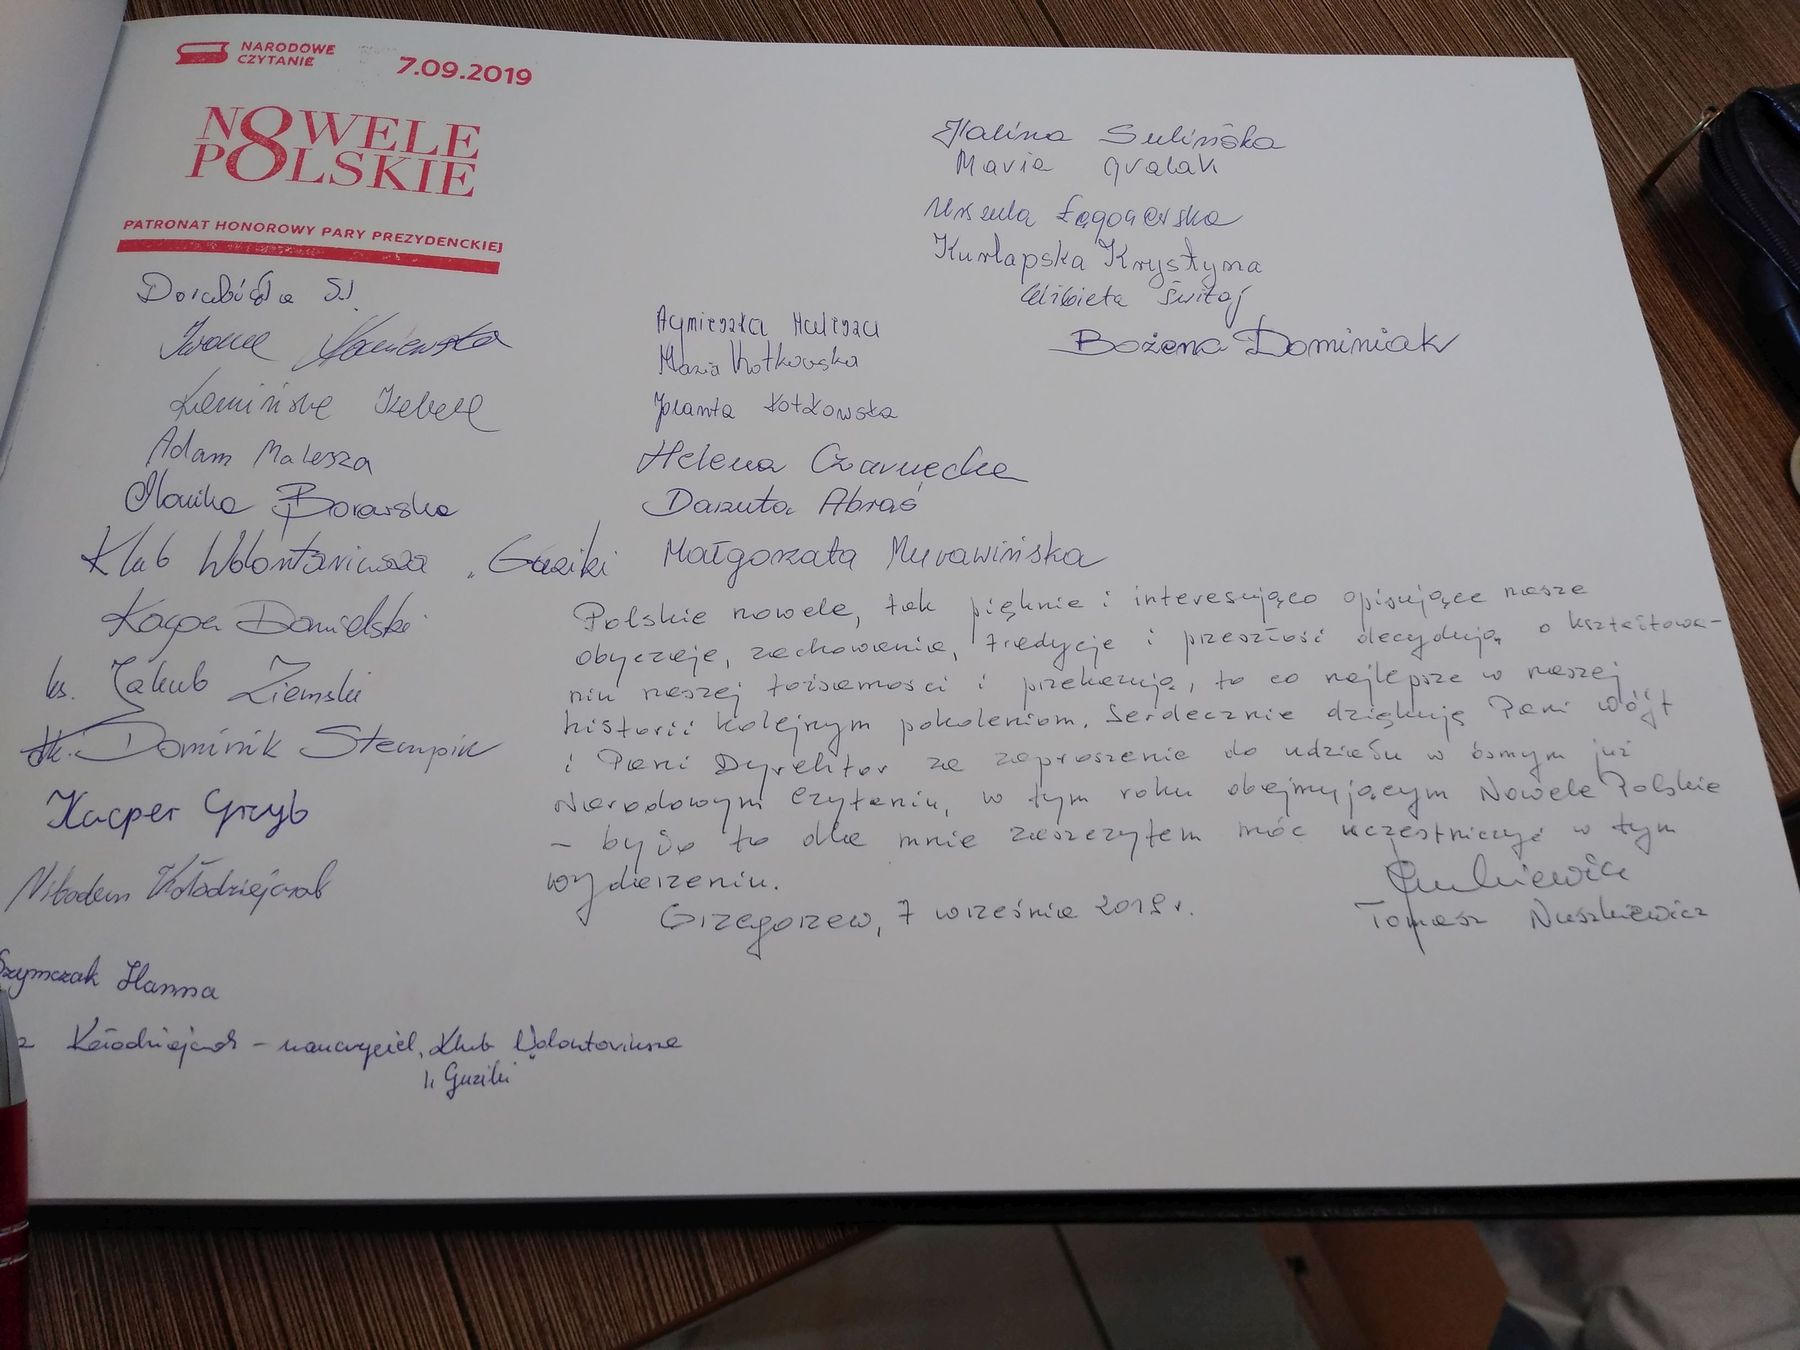 NARODOWE
CZYTANIE
7.09.2019
NOWELE
POLSKIE
PATRONAT HONOROWY PARY PREZYDENCKIEJ
Iwona
Kamińska Izabela
Adam Malesza
Monika Borowska
Klub Wolontariusza „Guziki
Kacper Danielski
ks. Jakub Ziemski
dk. Dominik Stempin
Kacper Grzyb
Nikodem Kołodziejczak
Szymczak Hanna
Kołodziejczak - nauczyciel, Klub Wolontariusza
„Guziki
Agnieszka Malesza
Maria Kotkowska
Jolanta Kotkowska
Helena Czarnecka
Danuta Abraś
Małgorzata Murawińska
Halina Sulińska
Maria Gralak
Urszula Łęgocka
Kurłapska Krystyna
Elżbieta Świtaj
Bożena Dominiak
Polskie nowele, tak pięknie i interesująco opisujące nasze
obyczaje, zachowania, tradycje i przeszłość decydują o kształtowa-
niu naszej tożsamości i przekazują, to co najlepsze w naszej
historii kolejnym pokoleniom. Serdecznie dziękuję Pani Wójt
i Pani Dyrektor za zaproszenie do udziału w ósmym już
Narodowym Czytaniu, w tym roku obejmującym Nowele Polskie
– było to dla mnie zaszczytem móc uczestniczyć w tym
wydarzeniu.
Grzegorzew, 7 września 2019 r.
Tomasz Nuszkiewicz